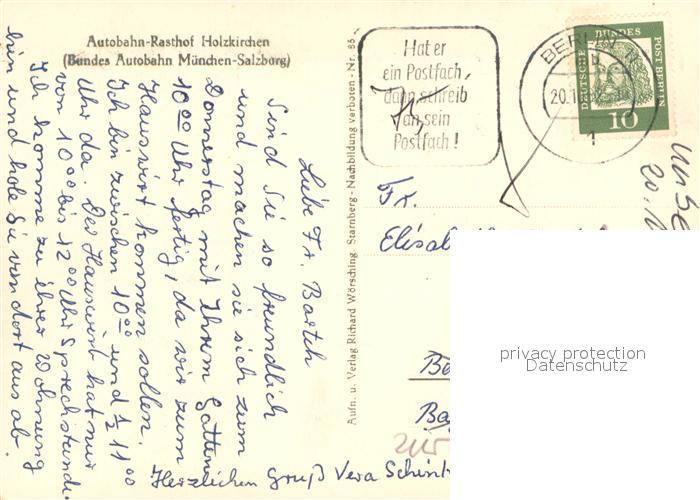 Autobahn-Rasthof Holzkirchen
(Bundes Autobahn München-Salzburg)
Liebe Fr. Bartch
Sind Sie so freundlich
und machen sie sich zum
Donnerstag mit Ihrem Gatten
10⁰⁰ Uhr fertig, da wir zum
Hauswirt kommen sollen.
Ich bin zwischen 10⁰⁰ und ½ 11⁰⁰
Uhr da. Der Hauswirt hat nur
von 10⁰⁰ bis 12⁰⁰ Uhr Sprechstunde.
Ich komme zu ihrer Wohnung
hin und hole Sie von dort aus ab.
Herzlichen Gruß Vera
Aufn. u. Verlag Richard Wörsching, Starnberg - Nachbildung verboten - Nr. 86
Hat er
ein Postfach,
dann schreib
an sein
Postfach!
BERLIN
20.1
1
DEUTSCHE BUNDES POST BERLIN
10
Fr.
privacy protection
Datenschutz
zur